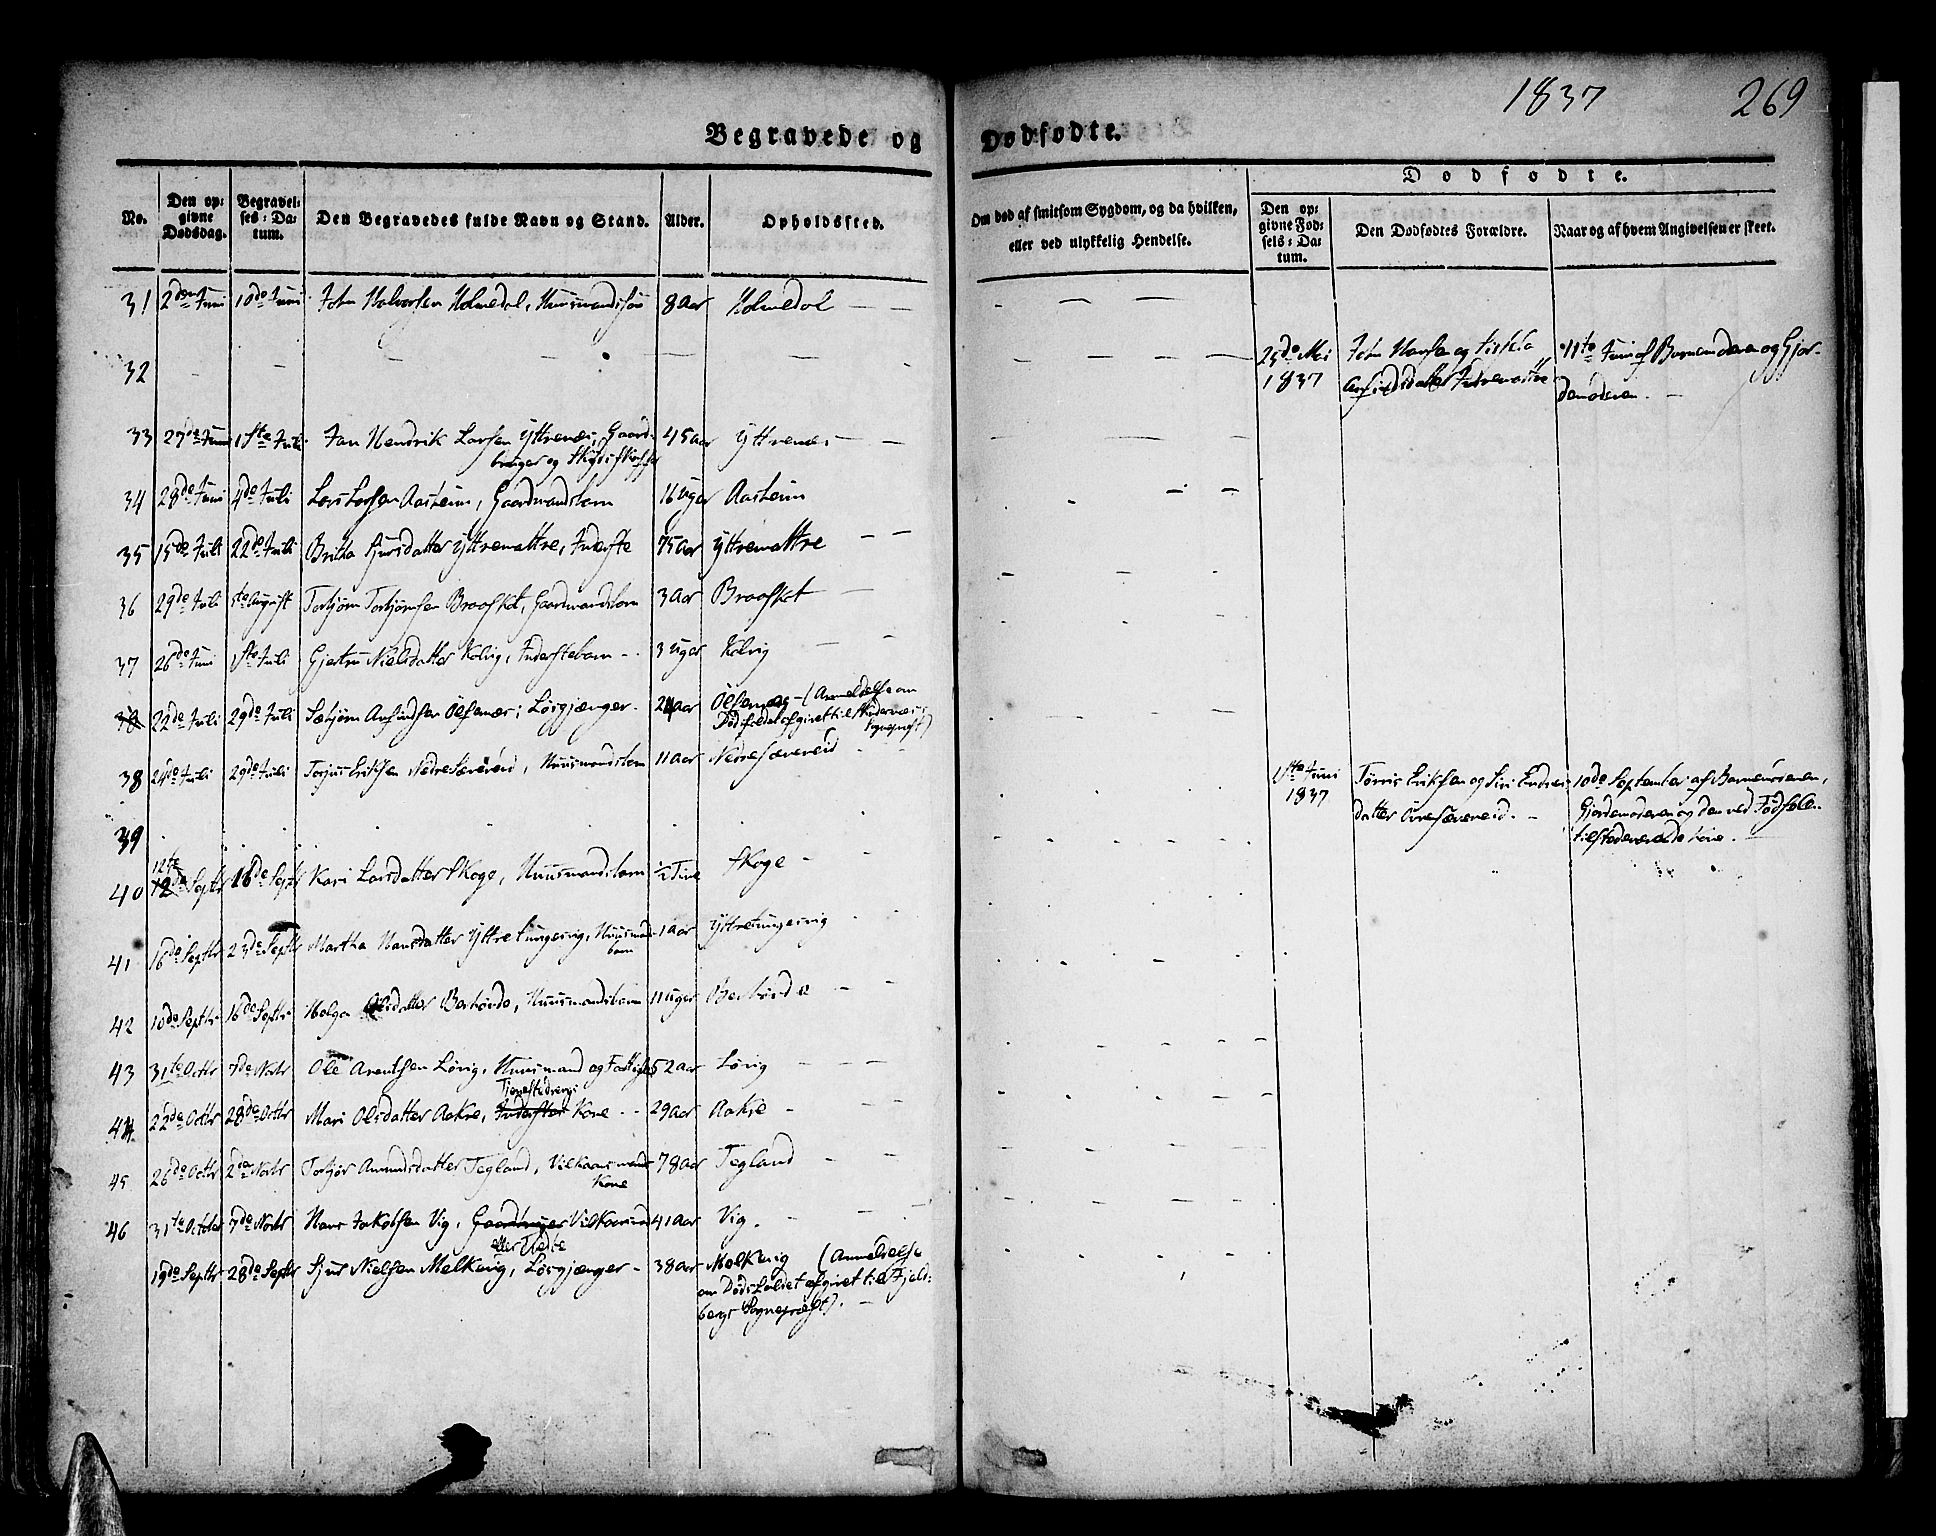 1837 269
Begravede og Dødfødte.
Dødfødte.
No.
Den op-
givne
Dødsdag.
Begravel-
ses-Da-
tum.
Den Begravedes fulde Navn og Stand.
Alder.
Opholdssted.
Om død af smitsom Sygdom, og da hvilken,
eller ved ulykkelig Hendelse.
Den op-
givne Fød-
sels-Da-
tum.
Den Dødfødtes Forældre.
Naar og af hvem Angivelsen er skeet.
31 2den Juni 10de Juni John Halvorsen Holmedal, Huusmandssøn 8 Aar Holmedal
32 25de Mai John Hansen og 11te Juni af Barnemoderen og Gjor-
1837 demoderen.
33 27de Juni 1ste Juli Jan Hendrik Larsen Yttrenæs, Gaard- 45 Aar Yttrenæs
bruger og
34 28de Juni 4de Juli Lars Larsen Aasheim, Gaardmandsbarn 16 Uger Aasheim
35 15de Juli 22de Juli Britha Sjursdatter Yttremattre, Inderste 75 Aar Yttremattre
36 29de Juli 5te August Torbjørn Torbjørnsen Braasket, Gaardmandsbarn 3 Aar Braasket
37 26de Juni 1ste Juli Gjertru Nielsdatter Kolvig, Inderstebarn 3 Uger Kolvig
38 22de Juli 29de Juli Sæbjørn Anfindsen Ølfernæs, Løsgjænger 24 Aar Ølfernæs (Anmeldelse om
Dødsfaldet afgivet til Skudenæs
Sognepræst)
38 24de Juli 29de Juli Torjus Eriksen Nedre Særvereid, Huusmandsbarn 11 Aar Nedresævereid
39 1ste Juni Tørris Eriksen og Siri Endres- 10de September af Barnemoderen,
1837 datter Øvresævereid. Gjordemoderen og den ved Fødsel
tilstedeværende Kone.
12te
40 12de Septbr 16de Septbr Kari Larsdatter Skoge, Huusmandsbarn ½ Time Skoge
41 16de Septbr 23de Septbr Martha Hansdatter Yttretungesvig, Huusmands- 1 Aar Yttretungesvig
barn
42 10de Septbr 16de Septbr Helga Olsdatter Børhørde, Huusmandsbarn 11 Uger
43 31te Octbr 7de Novbr Ole Arentsen Lørvig, Huusmand og 52 Aar Lørvig
Tjenestedrengs
44 22de Octbr 28de Octbr Mari Olsdatter Aakre, Inderstes Kone 29 Aar Aakre
45 26de Octbr 2de Novbr Torbjør Amundsdatter Tegland, Vilkaarsmands 78 Aar Tegland
Kone
46 31te October 7de Novbr Hans Jakobsen Vig, Gaardbruger Vilkaarsmand 41 Aar Vig.
19de Septbr 28de Septbr Sjur Nielsen Melkevig, Løsgjænger 38 Aar Molkevig (Anmeldelse
om Dødsfaldet afgivet til Fjeld-
bergs Sognepræst).